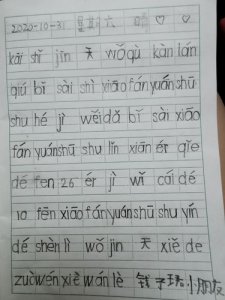 2020-10-31 星期六 晴 ♡ ♡
kāi shǐ jīn 天 wǒ qù kàn lán
qiú bǐ sài shì xiǎo fán yuán shū
shu hé jì wěi dà bǐ sài xiǎo
fán yuán shū shu lín xiān ér qiě
dé fen 26 ér jì wǐ cái dé
10 fēn xiǎo fán yuán shū shu yín
dé shèn lì wǒ jin 天 xiě de
zuò wén xiě wán lè 钱子 小朋友